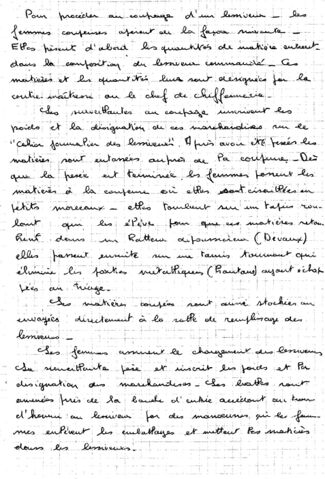 Pour procéder au coupage d'un lessiveur - les
femmes coupeuses opèrent de la façon suivante -
Elles pèsent d'abord les quantités de matière entrant
dans la composition du lessiveur commandé - Ces
matières et les quantités leur sont désignées par la
contre-maîtresse ou le chef de chiffonnerie.
Les surveillantes au coupage inscrivent les
poids et la désignation de ces marchandises sur le
"Cahier journalier des lessiveurs". Après avoir été pesées les
matières sont entassées auprès de la coupeuse - Dès
que la pesée est terminée les femmes passent les
matières à la coupeuse où elles sont cisaillées en
petits morceaux - elles tombent sur un tapis rou-
lant qui les élève pour que ces matières retom-
bent dans un batteur dépoussiéreur (Devaux)
elles passent ensuite sur un tamis tournant qui
élimine les parties métalliques (boutons) ayant échap-
pées au triage.
Les matières coupées sont ainsi stockées ou
envoyées directement à la salle de remplissage des
lessiveurs -
Les femmes assurent le chargement des lessiveurs
La surveillante pèse et inscrit les poids et la
désignation des marchandises - Les balles sont
amenées près de la bouche d'entrée accédant au trou
d'homme au lessiveur par des manoeuvres, puis les fem-
mes enlèvent les emballages et mettent les matières
dans les lessiveurs.